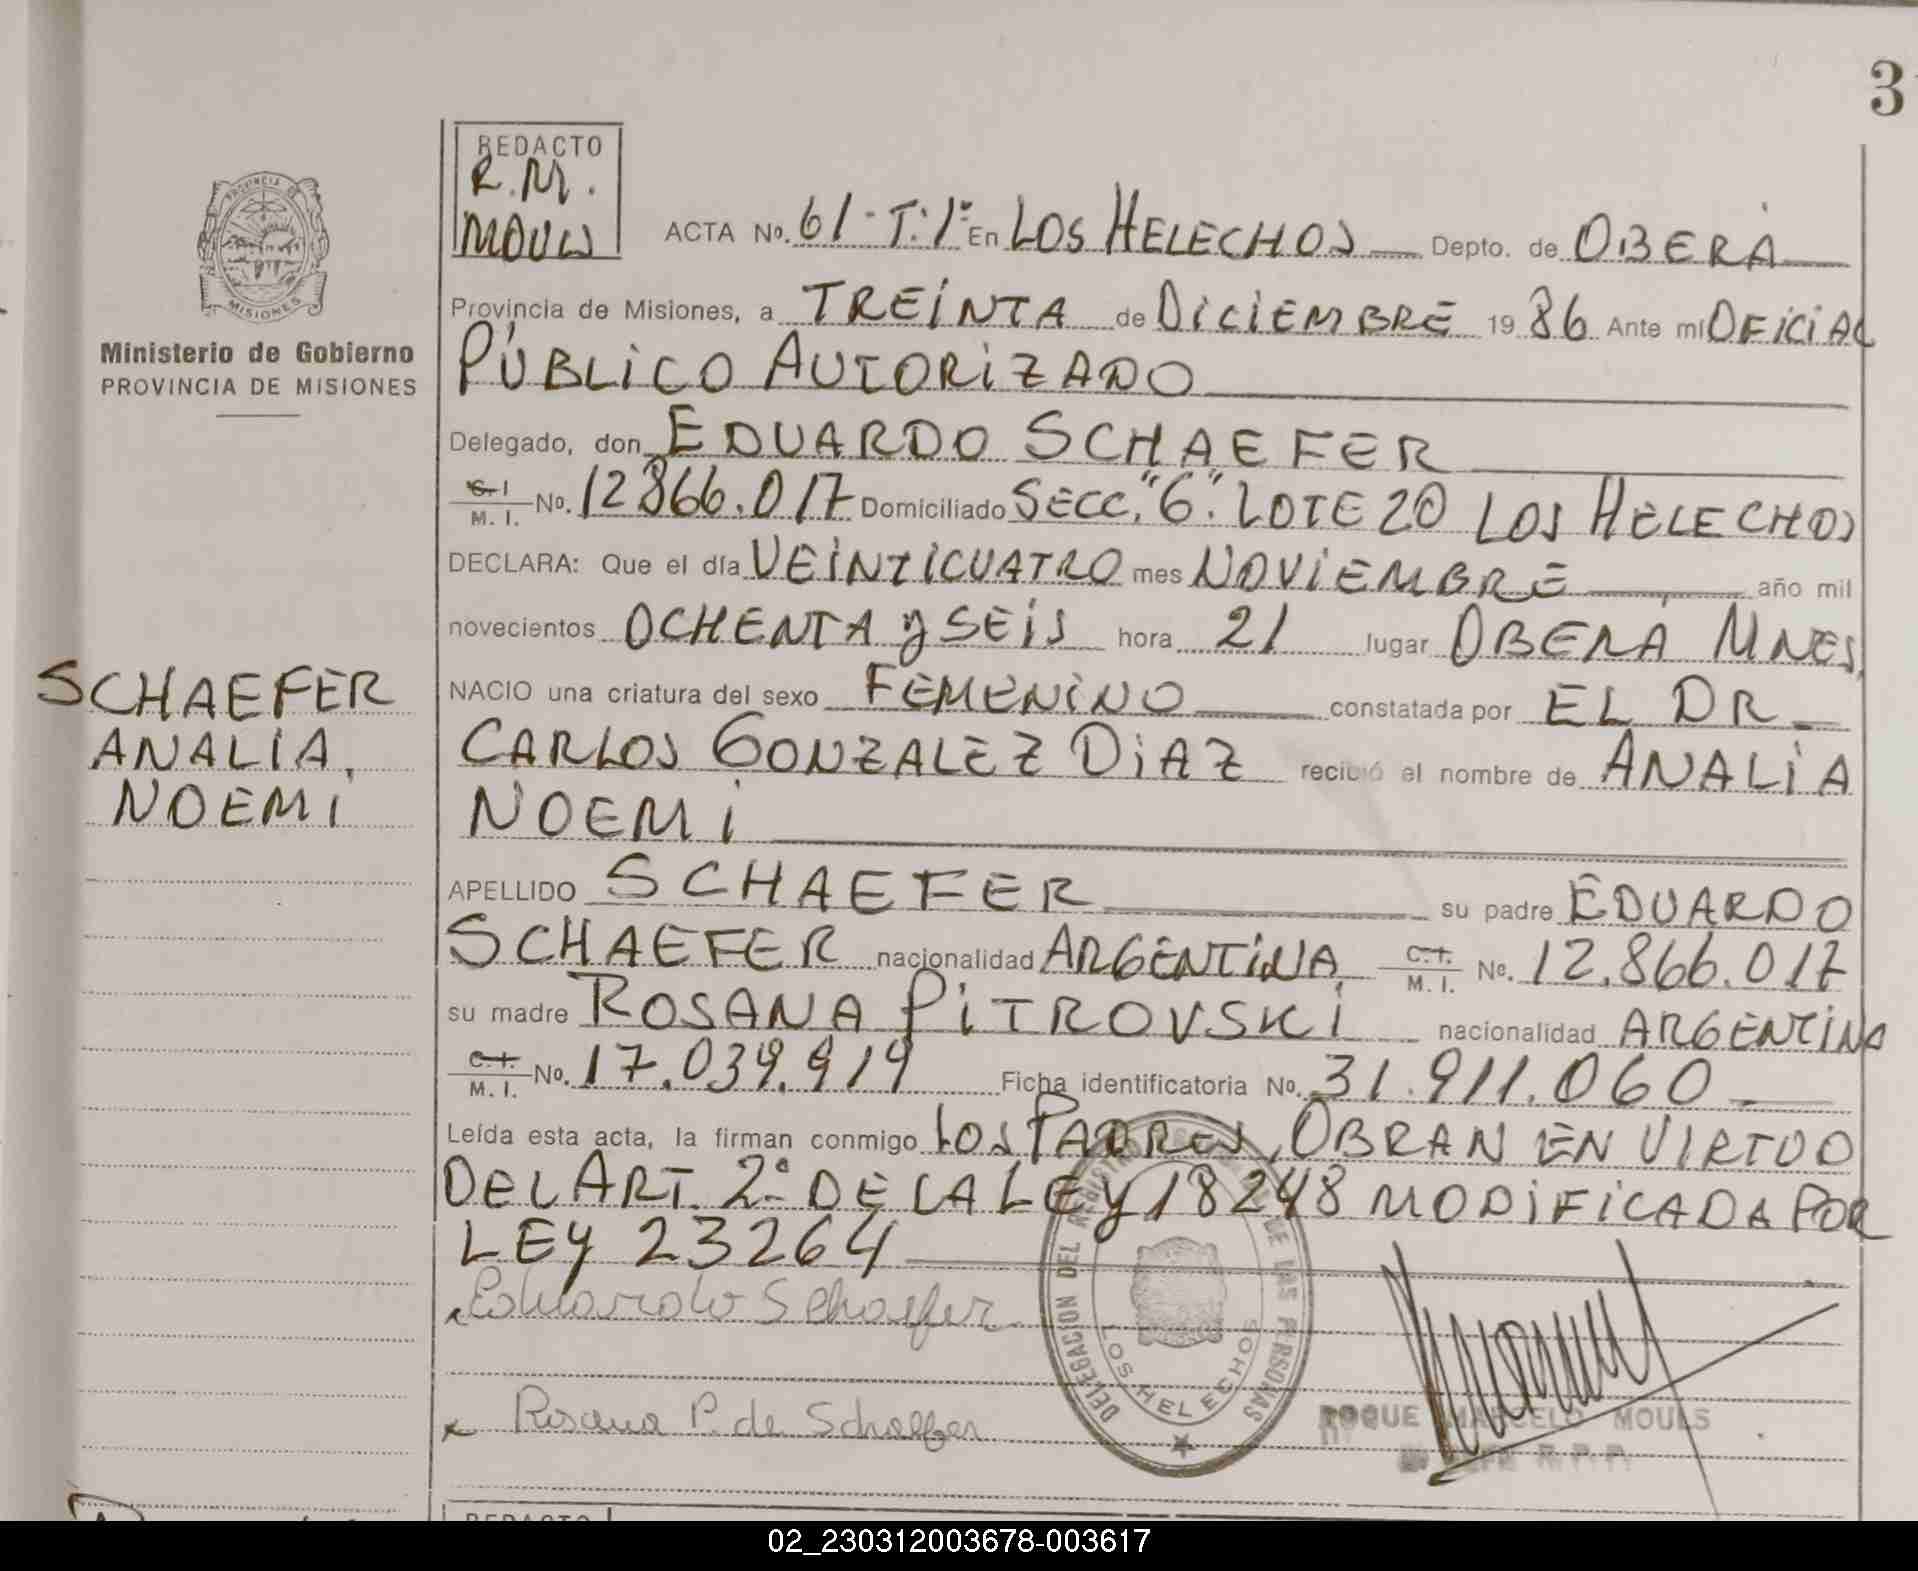 3
REDACTO
R.M.
MOULS
ACTA No. 61-T:1º En LOS HELECHOS Depto. de OBERA
PROVINCIA DE MISIONES
Provincia de Misiones, a TREINTA de DICIEMBRE 1986 Ante mí OFICIAL
Ministerio de Gobierno
PROVINCIA DE MISIONES
PÚBLICO AUTORIZADO
Delegado, don EDUARDO SCHAEFER
C. I M. I. No. 12866.017 Domiciliado SECC. "6". LOTE 20 LOS HELECHOS
DECLARA: Que el día VEINTICUATRO mes NOVIEMBRE año mil
novecientos OCHENTA y SEIS hora 21 lugar OBERA MNES.
NACIO una criatura del sexo FEMENINO constatada por EL DR
SCHAEFER
ANALIA,
NOEMI
CARLOS GONZALEZ DIAZ recició el nombre de ANALIA
NOEMI
APELLIDO SCHAEFER su padre EDUARDO
SCHAEFER nacionalidad ARGENTINA C.I. M. I. No. 12.866.017
su madre ROSANA PITROVSKI nacionalidad ARGENTINA
C.I. M. I. No. 17.039.919 Ficha identificatoria No. 31.911.060
Leída esta acta, la firman conmigo LOS PADRES, OBRAN EN VIRTUD
DEL ART. 2º DE LA LEY 18248 MODIFICADA POR
LEY 23264
Eduardo Schaefer
Rosana P. de Schaefer
DELEGACION DEL REGISTRO DE LAS PERSONAS
LOS HELECHOS
ROQUE MARCELO MOULS
REDACTO
02_230312003678-003617